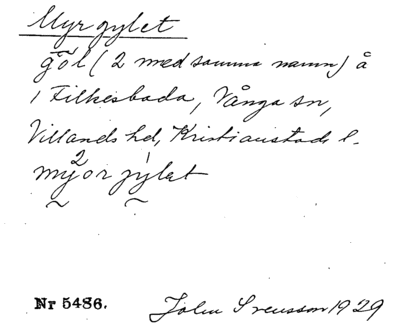 Myrgylet
göl (2 med samma namn) å
1 Filkesboda, Vånga sn,
Villands hd, Kristianstads l.
my2or jylet
Nr 5486. John Svensson 1929